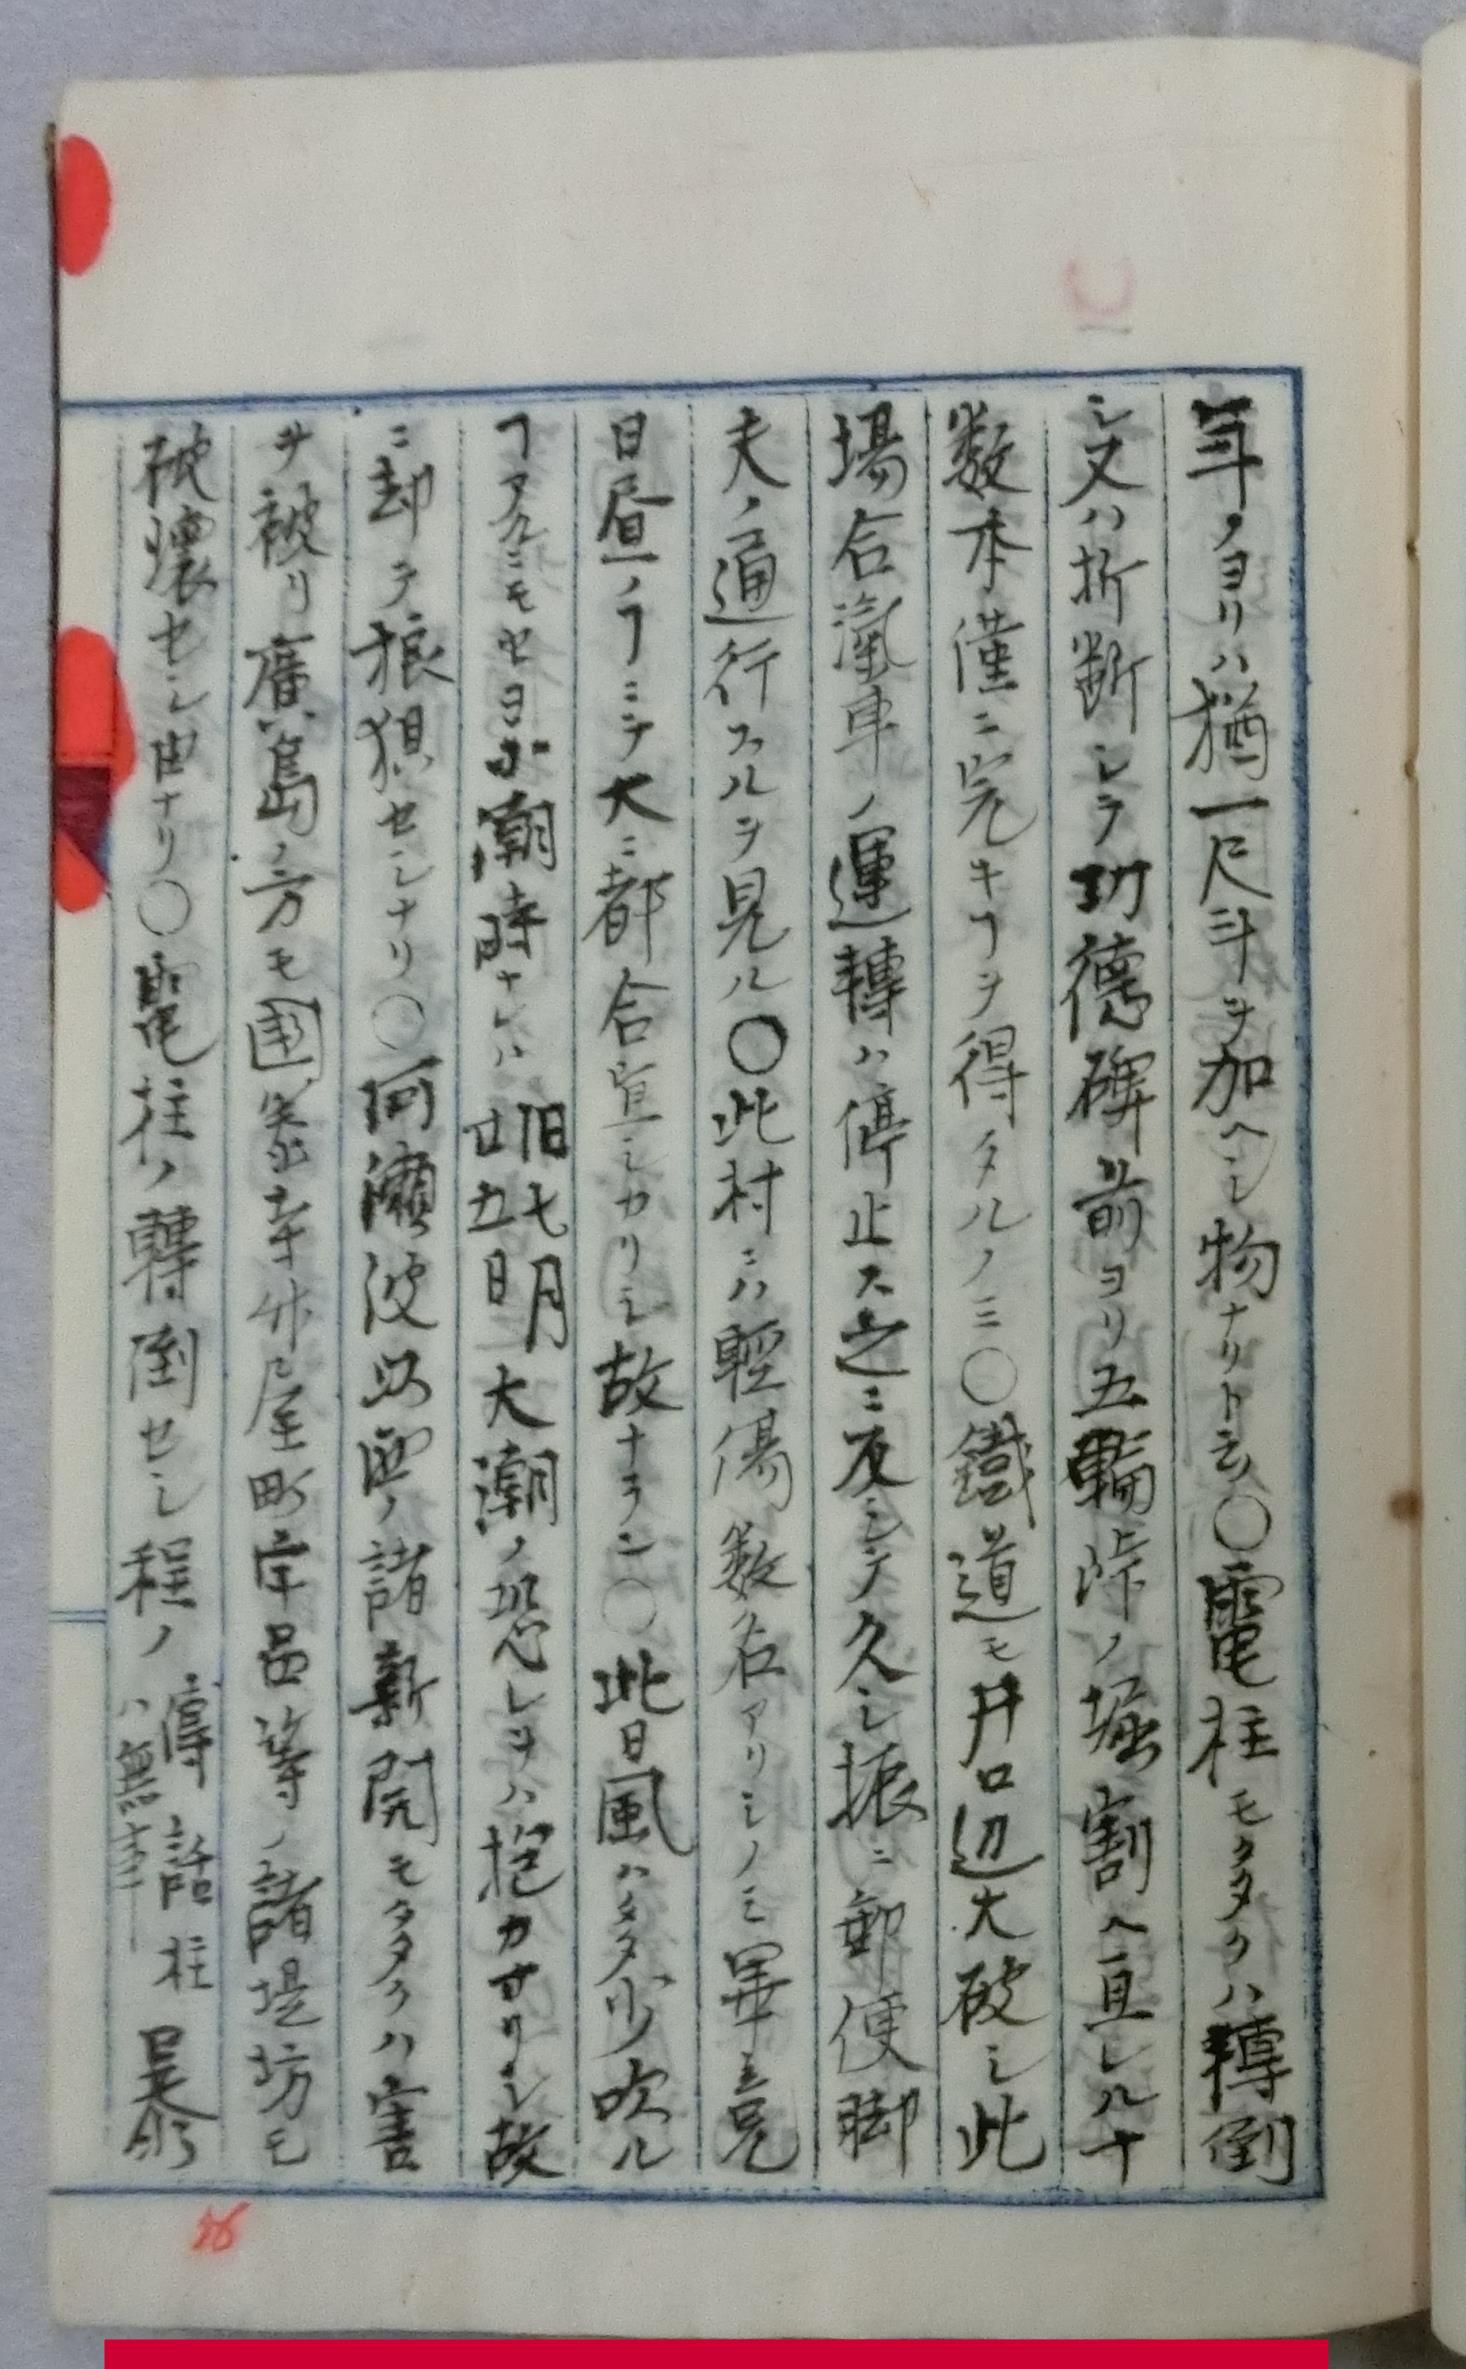 年ノヨリハ猶一尺斗ヲ加ヘシ物ナリト云〇電柱モ多クハ轉倒
シ又ハ折断シテ功徳碑前ヨリ五輪峠ノ堀割ヘ亘レル十
数本僅ニ完キヿヲ得タルノミ〇鐵道モ井口辺大破シ此
場合滊車ノ運轉ハ停止ス之ニ反シテ久シ振ニ郵便脚
夫ノ通行スルヲ見ル〇此村ニハ輕傷数名アリシノミ畢竟
日昼ノヿニテ大ニ都合宜シカリシ故ナラン〇此日風ハ多少吹ル
ヿアルニモセヨ小潮時ナレハ旧七月廿五日大潮ノ恐レヲハ抱カサリシ故
ニ却テ狼狽セシナリ〇阿瀬波以西ノ諸新開モ多クハ害
ヲ被リ廣島ノ方モ国泰寺竹屋町宇品等ノ諸堤坊モ
破壊セシ由ナリ〇電柱ノ轉倒セシ程ノ傳話柱ハ無事
26